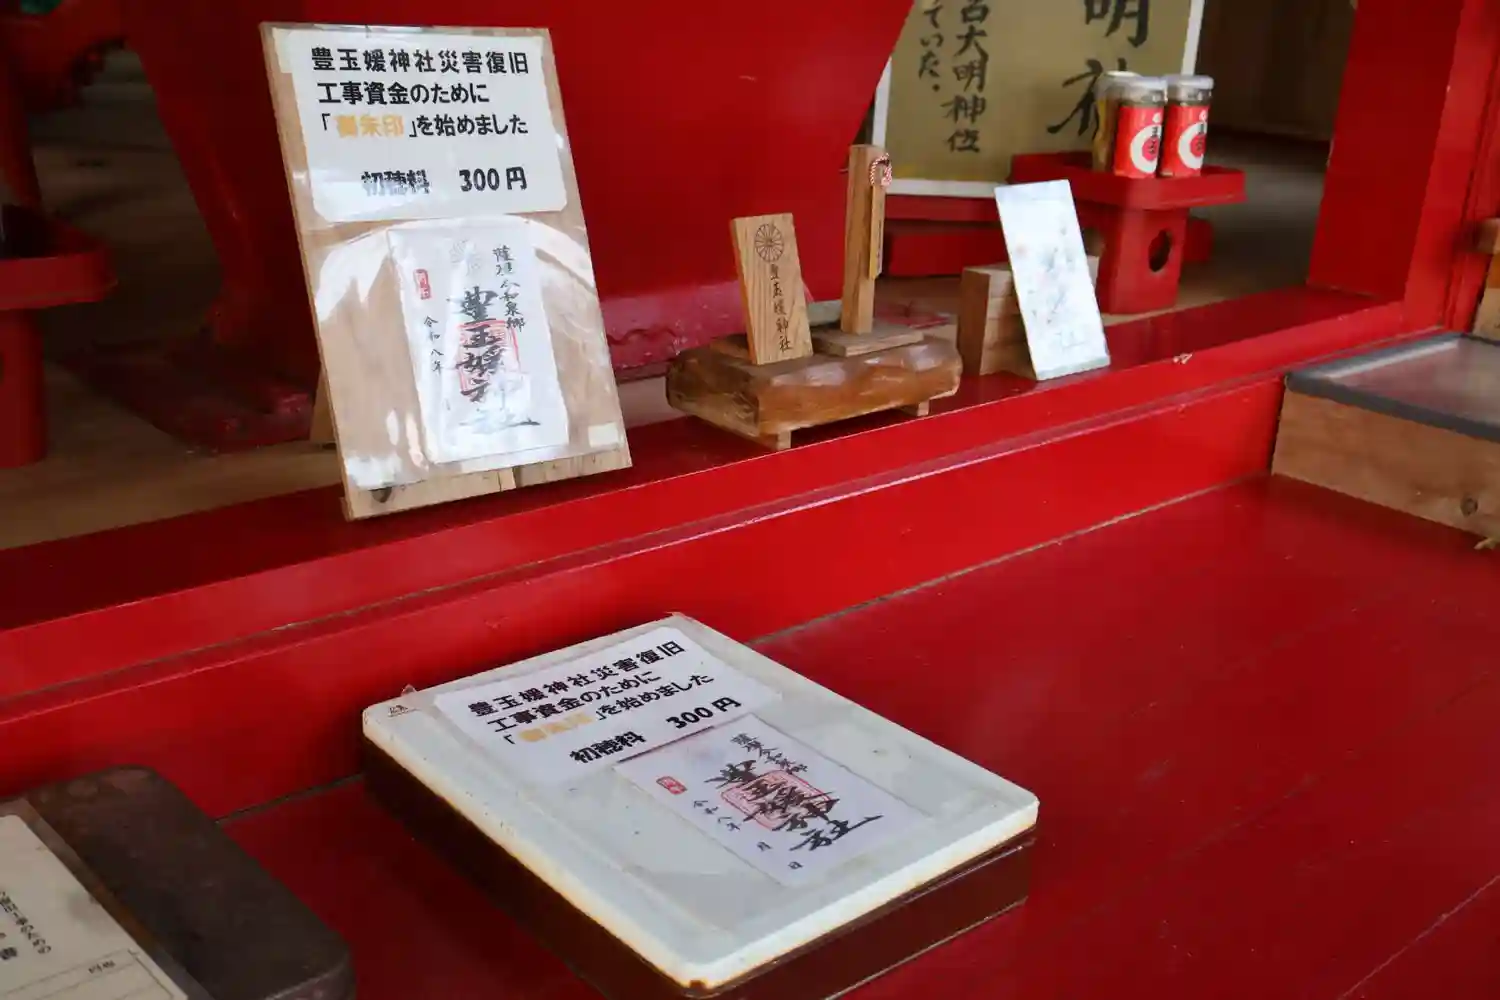 豊玉媛神社災害復旧
工事資金のために
「御朱印」を始めました
初穂料 300円
薩摩今和泉郷
豊玉媛神社
令和八年
豊玉媛神社
明
大明神位
ていた。
豊玉媛神社災害復旧
工事資金のために
「御朱印」を始めました
初穂料 300円
薩摩今和泉郷
豊玉媛神社
令和八年
月
日